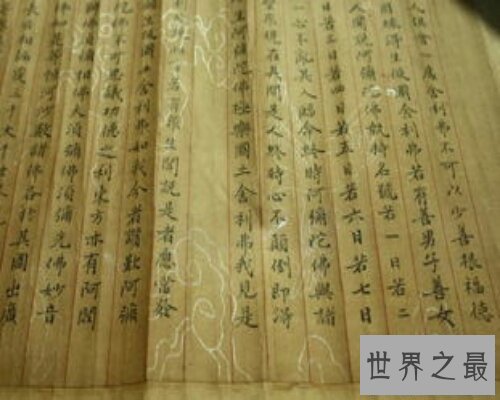 人俱會一處舍利弗不可以少善根福德
因緣得生彼國舍利弗若有善男子善女
人聞說阿彌陀佛執持名號若一日若二
日若三日若四日若五日若六日若七日
一心不亂其人臨命終時阿彌陀佛與諸
聖眾現在其前是人終時心不顛倒即得
生阿彌陀佛極樂國土舍利弗我見是
此言若有眾生聞說是者應當發
生彼國土舍利弗如我今者讚歎阿彌
陀佛不可思議功德之利東方亦有阿閦
佛須彌相佛大須彌佛須彌光佛妙音
佛如是等恒河沙數諸佛各於其國出廣
長舌相遍覆三千大千世
世界之最